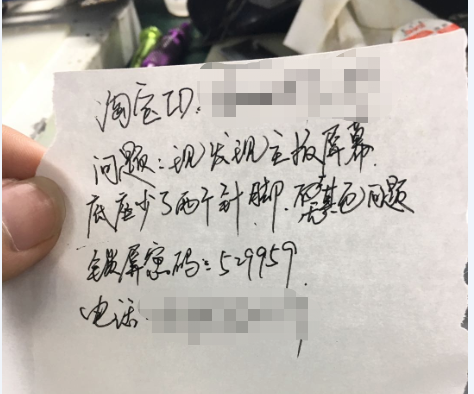 淘宝ID:
问题:现发现主板屏幕
底座少了两个针脚.其他问题
锁屏密码:529959
电话